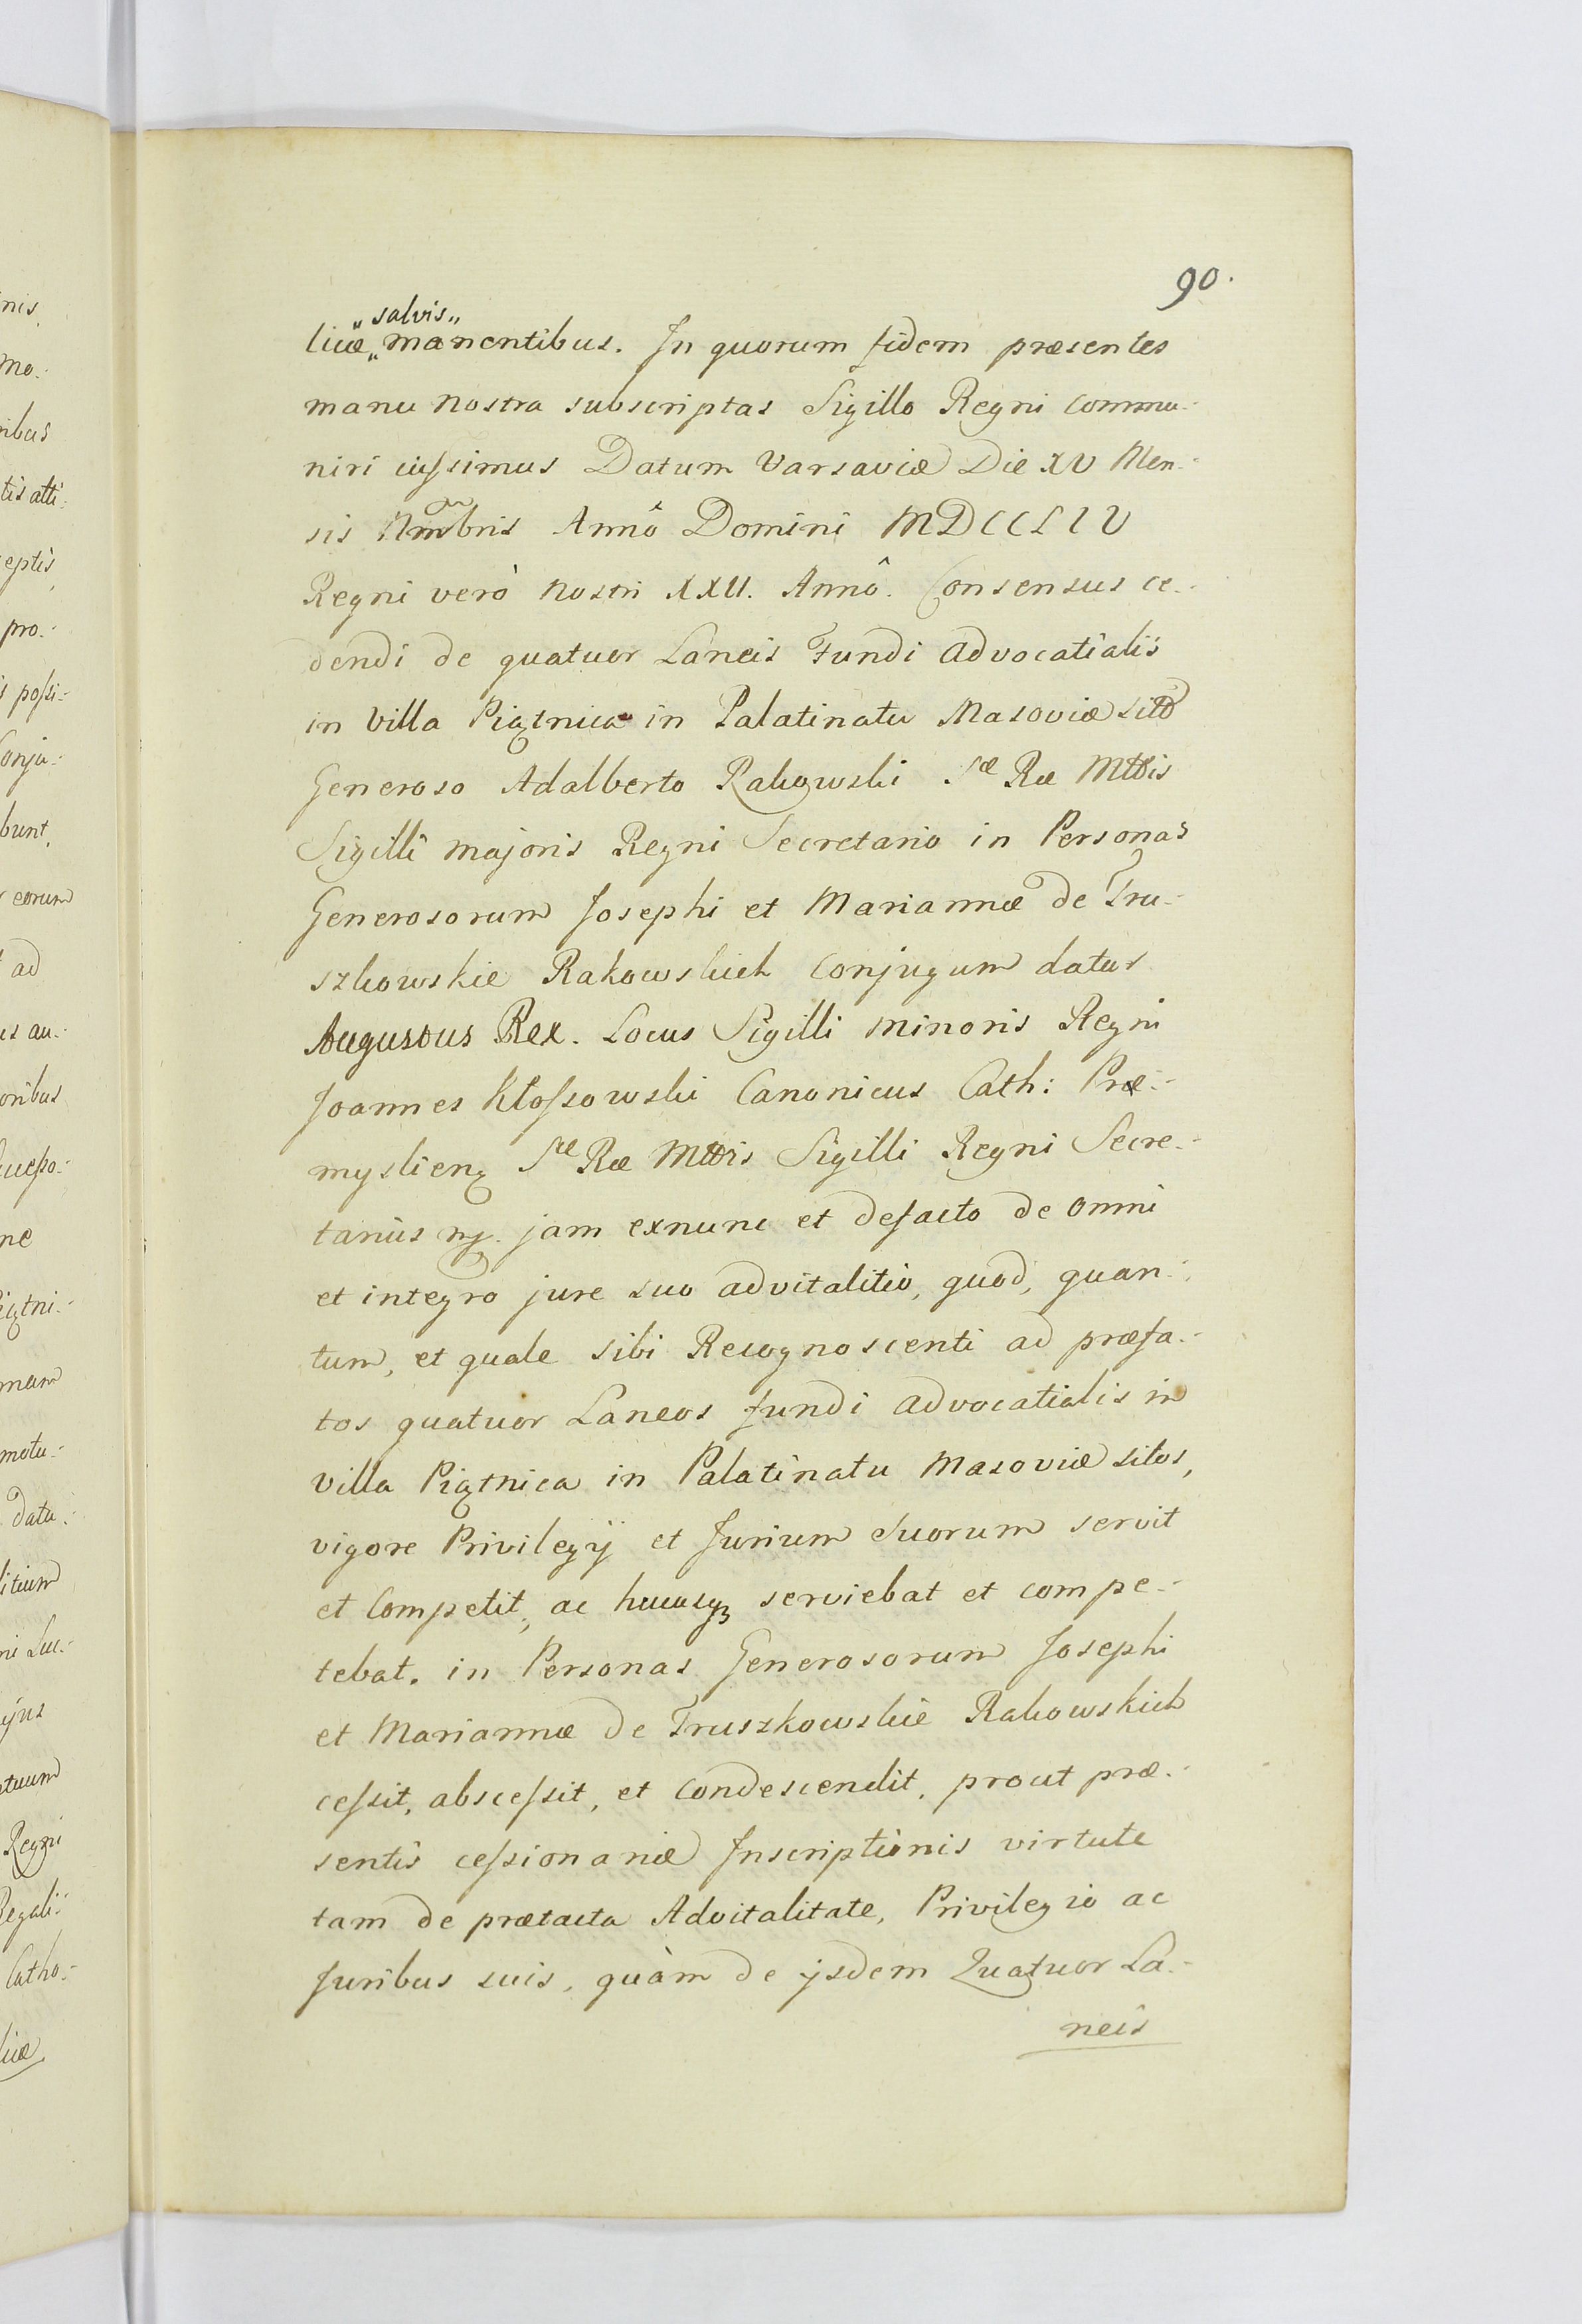 90.
„salvis„
licæ„ manentibus. In quorum fidem præsentes
manu nostra subscriptas Sigillo Regni commu-
niri iuſsimus Datum Varsaviæ Die XV Men-
sis Nmbris Annô Domini MDCCLIV
Regni verò nostri XXII. Annô. Consensus ce-
dendi de quatuor Laneis Fundi advocatialis
in Villa Piątnica in Palatinatu Masoviæ sito
Generoso Adalberto Rakowski Sæ Ræ Mttis
Sigilli majoris Regni Secretario in Personas
Generosorum Josephi et Mariannæ de Tru-
szkowskie Rakowskich conjugum datus
Augustus Rex. Locus Sigilli minoris Regni
Joannes Kłoſsowski Canonicus Cath: Præ-
myslien Sæ Ræ Mttis Sigilli Regni Secre-
tariùs jam exnunc et defacto de omni
et integro jure suo advitalitio, quod, quan-
tum, et quale sibi Recognoscenti ad præfa-
tos quatuor Laneos fundi advocatialis in
villa Piątnica in Palatinatu Masoviæ sitos,
vigore Privilegij et Jurium Suorum servit
et Competit, ac hucusqꝫ serviebat et compe-
tebat. in Personas Generosorum Josephi
et Mariannæ de Truszkowskie Rakowskich
ceſsit, absceſsit, et Condescendit, prout præ-
sentis ceſsionariæ Inscriptionis virtute
tam de prætacta Advitalitate, Privilegio ac
Juribus suis, quàm de ijsdem Quatuor La-
neis
nis
mo-
ribus
tis atti-
ceptis
pro-
s poſsi-
Conju-
bunt,
eorum
ad
us au-
oribus
ne
iątni-
mam
motu-
data
litium
ni Luc-
ejus
tuum
Regni
Regali-
Catho-
licæ